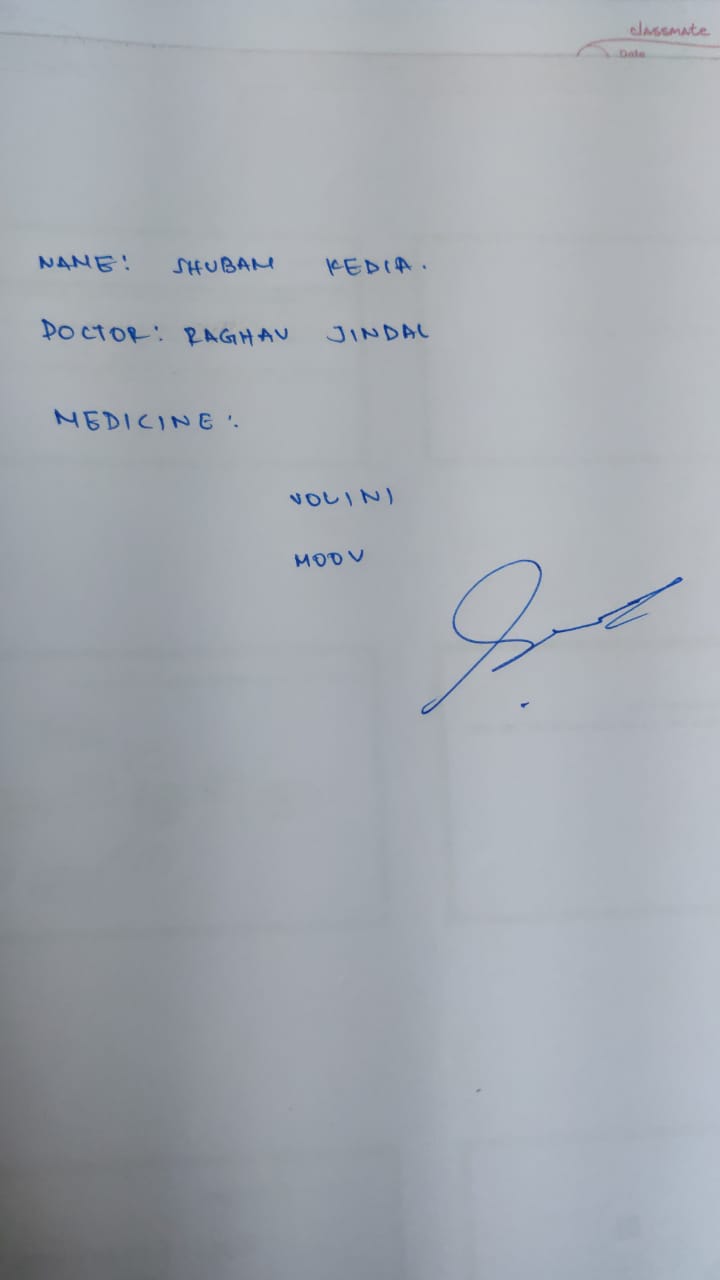 classmate
Date
NAME: SHUBAM KEDIA.
DOCTOR: RAGHAV JINDAL
MEDICINE:
VOLINI
MOOV